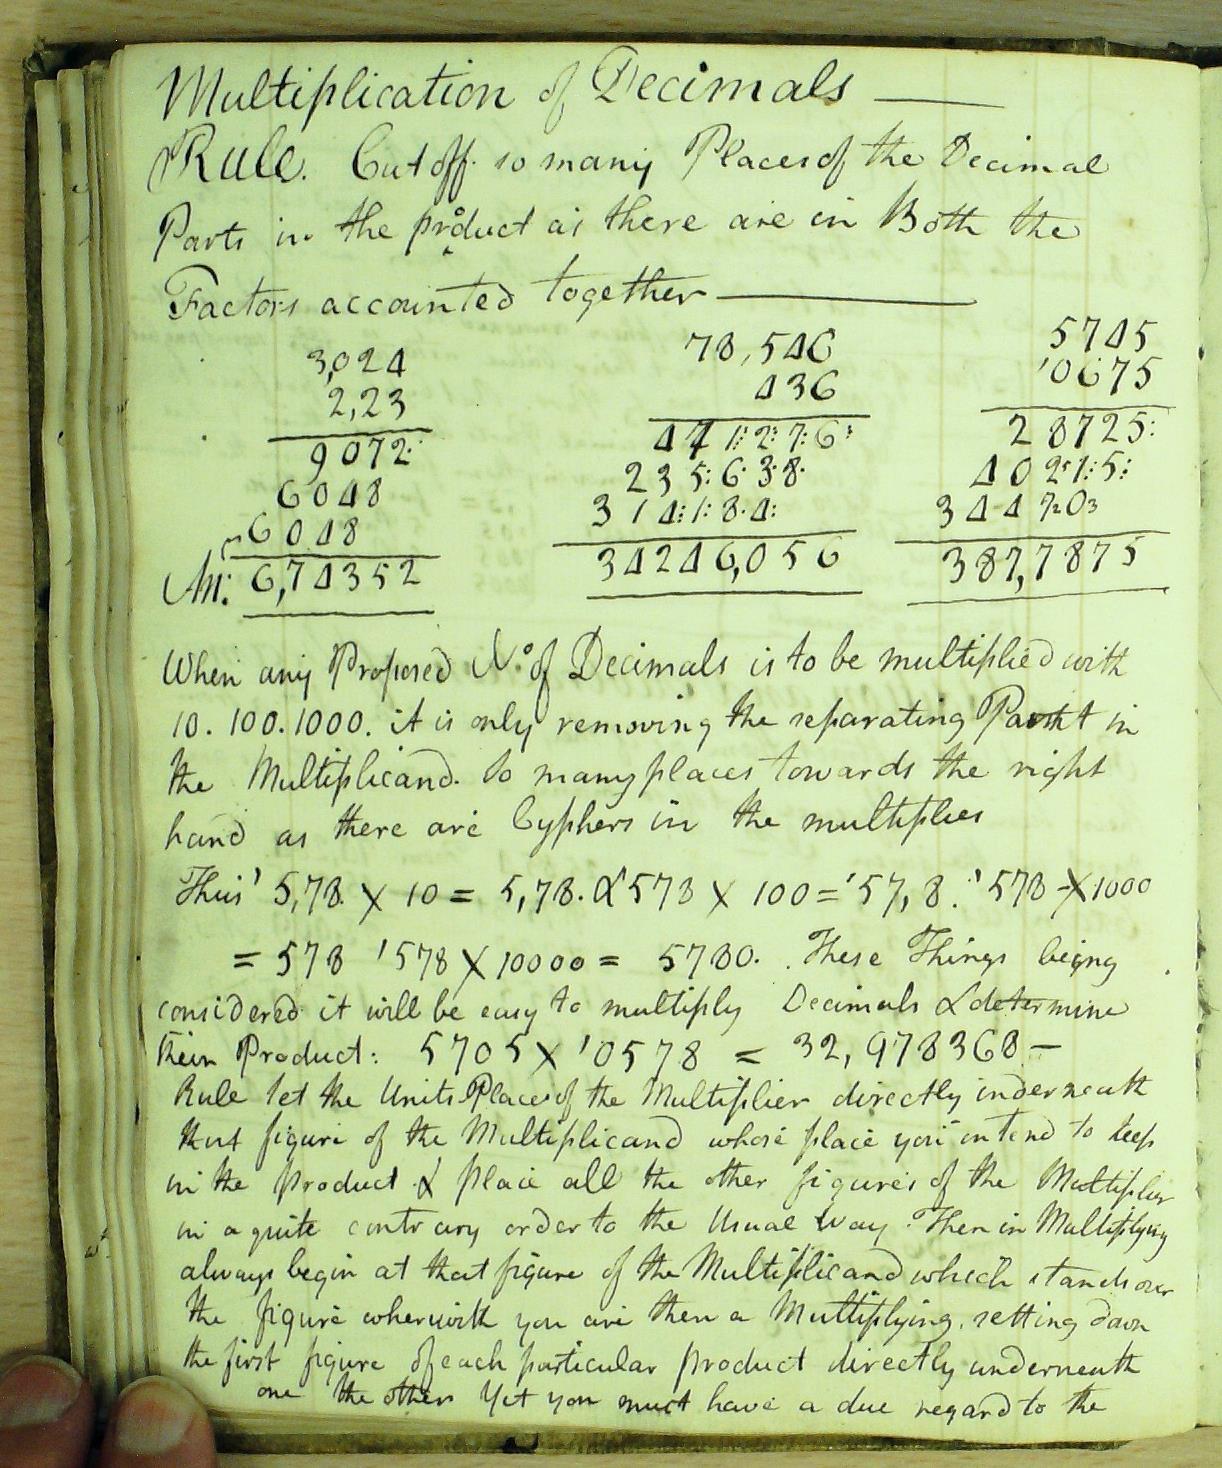 Multiplication of Decimals —
Rule. Cut off so many Places of the Decimal
Parts in the product as there are in Both the
Factors accounted together —
3,024 78,546 5745
2,23 436 '0675
9072 471276 28725
6048 235638 40215
6048 314184 34470
An: 6,74352 34246,056 387,7875
When any Proposed No. of Decimals is to be multiplied with
10. 100. 1000. it is only removing the separating in
the Multiplicand. so many places towards the right
hand as there are Cyphers in the multiplier
Thus ' 5,78. X 10 = 5,78. & 578 X 100 = '57,8. ' 578 X 1000
= 578 '578 X 10000 = 5780. These Things being
considered it will be easy to multiply Decimals & determine
their Product: 5705 X '0578 = 32,978368 —
Rule Set the Units Place of the Multiplier directly underneath
that figure of the Multiplicand whose place you intend to keep
in the Product & place all the other figures of the Multiplier
in a quite contrary order to the Usual Way. Then in Multiplying
always begin at that figure of the Multiplicand which stands over
the figure wherwith you are then a Multiplying, setting down
the first figure of each particular product directly underneath
one the other Yet you must have a due regard to the